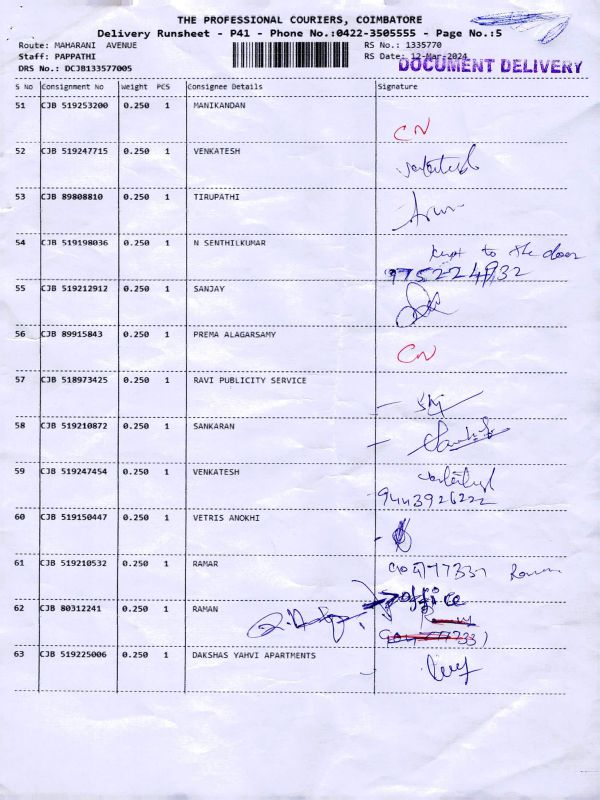 THE PROFESSIONAL COURIERS, COIMBATORE
Delivery Runsheet - P41 - Phone No.:0422-3505555 - Page No.:5
Route: MAHARANI AVENUE RS No.: 1335770
Staff: PAPPATHI RS Date: 12-Mar-2024
DOCUMENT DELIVERY
DRS No.: DCJB133577005
S No Consignment No Weight PCS Consignee Details Signature
51 CJB 519253200 0.250 1 MANIKANDAN
CN
52 CJB 519247715 0.250 1 VENKATESH
53 CJB 89808810 0.250 1 TIRUPATHI
54 CJB 519198036 0.250 1 N SENTHILKUMAR
kept to the door
9752224932
55 CJB 519212912 0.250 1 SANJAY
56 CJB 89915843 0.250 1 PREMA ALAGARSAMY
CN
57 CJB 518973425 0.250 1 RAVI PUBLICITY SERVICE
58 CJB 519210872 0.250 1 SANKARAN
59 CJB 519247454 0.250 1 VENKATESH
9443926222
60 CJB 519150447 0.250 1 VETRIS ANOKHI
61 CJB 519210532 0.250 1 RAMAR
62 CJB 80312241 0.250 1 RAMAN
office
63 CJB 519225006 0.250 1 DAKSHAS YAHVI APARTMENTS